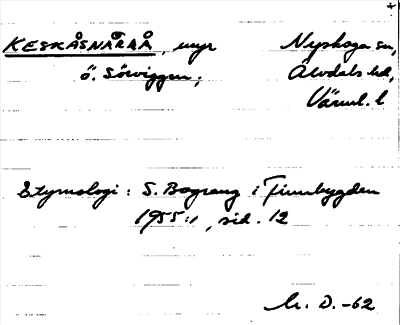 KESKÅSNÅRRÅ, myr Nyskoga sn,
ö. Sörviggen; Älvdals hd,
Värml. l
Etymologi: S. Bograng i Finnbygden
1955:1, sid. 12
D. -62